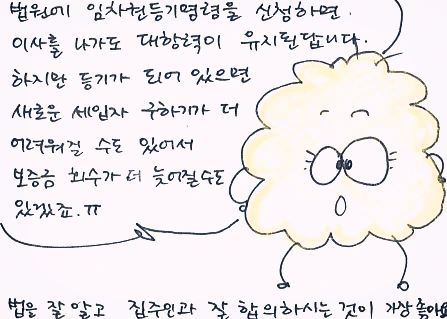 법원에 임차권등기명령을 신청하면.
이사를 나가도 대항력이 유지된답니다.
하지만 등기가 되어 있으면
새로운 세입자 구하기가 더
어려워질 수도 있어서
보증금 회수가 더 늦어질수도
있겠죠.ㅠ
법을 잘 알고 집주인과 잘 합의하시는 것이 가장 좋아요